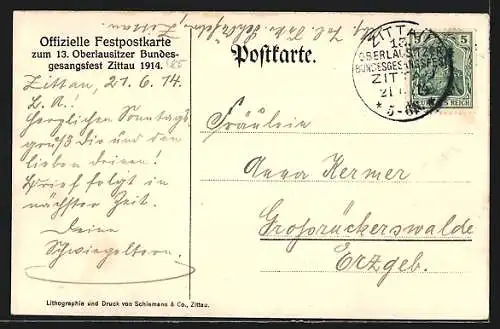 Offizielle Festpostkarte
zum 13. Oberlausitzer Bundes-
gesangsfest Zittau 1914.
Postkarte.
ZITTAU
13.
OBERLAUSITZER
BUNDESGESANGSFEST
ZITTAU
21.6.14
* 5-6N.
5
DEUTSCHES REICH
Zittau, 21.6.14
L. A.!
Herzlichen Sonntags
gruß dir und den
lieben deinen!
Brief folgt in
nächster Zeit.
Deine
Schwiegeltern.
Fräulein
Anna Kermer
Großrückerswalde
Erzgeb.
Lithographie und Druck von Schiemans & Co., Zittau.